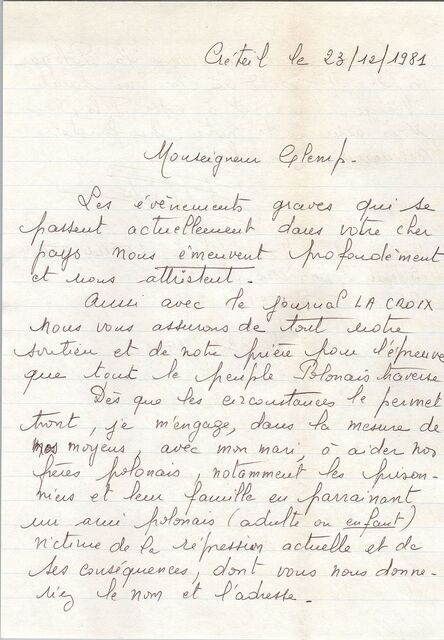 Créteil le 23/12/1981
Monseigneur Glemp.
Les évènements graves qui se
passent actuellement dans votre cher
pays nous émeuvent profondément
et nous attristent.
Aussi avec le journal LA CROIX
nous vous assurons de tout notre
soutien et de notre prière pour l'épreuve
que tout le peuple Polonais traverse
Dès que les circonstances le permet
tront, je m'engage, dans la mesure de
mes moyens, avec mon mari, à aider nos
frères polonais, notamment les prison-
niers et leur famille en parrainant
un ami polonais (adulte ou enfant)
victime de la répression actuelle et de
ses conséquences, dont vous nous donne-
riez le nom et l'adresse.